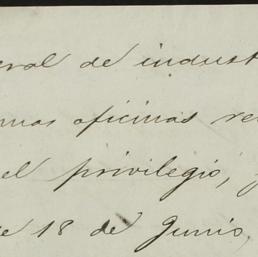 eral de indust
mas oficinas re
el privilegio,
e 18 de Junio,